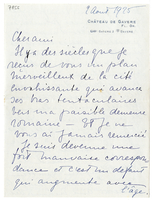 9 août 1925
CHÂTEAU DE
Cher ami
Il y a des siècles que je
reçus de vous un plan
merveilleux de la cité
envahissante qui avance
ses bras tentaculaires
vers ma paisible demeure
romaine. Et je ne
vous ai jamais remercié
Je suis devenue une
fort mauvaise correspon
dance et c'est un défaut
qui augmente avec
l'age